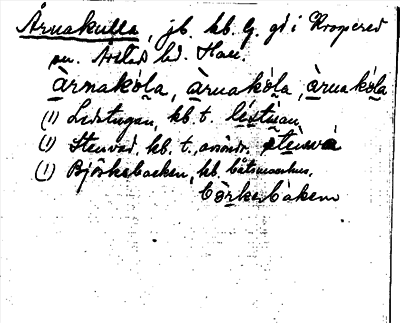 Årnakulla, jb. hb. G. gd i Kropered
sn. Årstad hd. Hall.
àrnakóla, àrnakóla, àrnakóla
(1) Ledstugan, hb. t. léstuan
(1) Stenvad, hb. t., avsöndr. sténvá
(1) Björkebacken, hb. båtsmanhus.
börkebàken